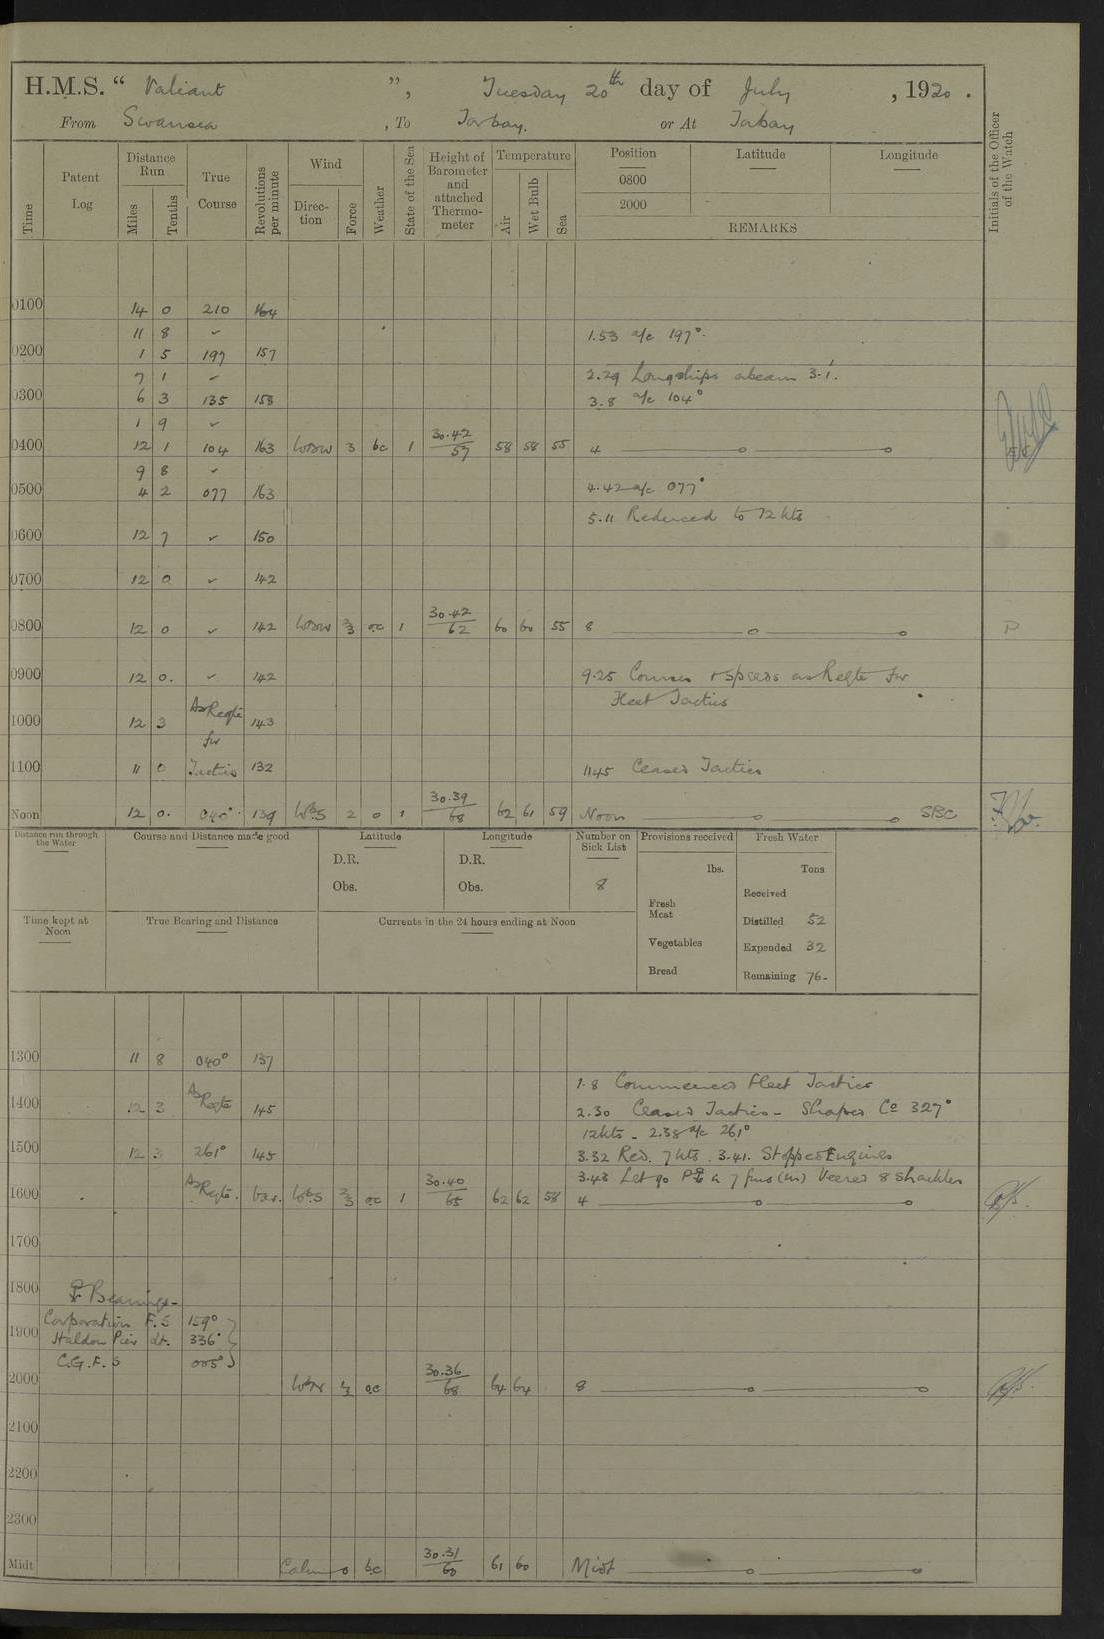 H.M.S. “ Valiant ”, Tuesday 20th day of July , 1920 .
From Swansea , To Torbay. or At Torbay
Time Patent Log Distance Run Miles Tenths True Course Revolutions per minute Wind Direction Force Weather State of the Sea Height of Barometer and attached Thermometer Temperature Air Wet Bulb Sea Position 0800 2000 Latitude Longitude REMARKS Initials of the Officer of the Watch
0100 14 0 210 164
11 8 ✓ 1.53 a/c 197°
0200 1 5 197 157
7 1 ✓ 2.29 Longships abeam 3.1'.
0300 6 3 135 158 3.8 a/c 104°
1 9 ✓
0400 12 1 104 163 WSW 3 bc 1 30.42/57 58 58 55 4
9 8 ✓
0500 4 2 077 163 4.42 a/c 077°
5.11 Reduced to 12 kts
0600 12 7 ✓ 150
0700 12 0 ✓ 142
0800 12 0 ✓ 142 WSW 2/3 oc 1 30.42/62 60 60 55 8
0900 12 0. ✓ 142 9.25 Courses & Speeds as Reqte for
Fleet Tactics
1000 12 3 As Reqte 143
for
1100 11 0 Tactics 132 1145 Ceased Tactics
Noon 12 0. 040° 139 WbS 2 o 1 30.39/68 62 61 59 Noon SBC
Distance run through the Water Course and Distance made good Latitude Longitude Number on Sick List Provisions received Fresh Water
D.R. D.R. lbs. Tons
Obs. Obs. 8 Received
Fresh Meat
Time kept at Noon True Bearing and Distance Currents in the 24 hours ending at Noon Distilled 52
Vegetables Expended 32
Bread Remaining 76-
1300 11 8 040° 137
1.8 Commenced Fleet Tactics
1400 12 3 As Reqte 145 2.30 Ceased Tactics - Shaped Co 327°
12kts - 2.38 a/c 261°
1500 12 3 261° 145 3.32 Red. 7 kts. 3.41. Stopped Engines
3.43 Let go P in 7 fms (m) Veered 8 Shackles
1600 As Reqte. Var. WbS 2/3 oc 1 30.40/65 62 62 58 4
1700
1800 Bearings-
Corporation F.S 159°
1900 Haldon Pier Lt. 336°
C.G.F.S 005°
2000 oc 30.36/68 64 64 8
2100
2200
2300
Midt Calm 0 bc 30.31/60 61 60 Midt